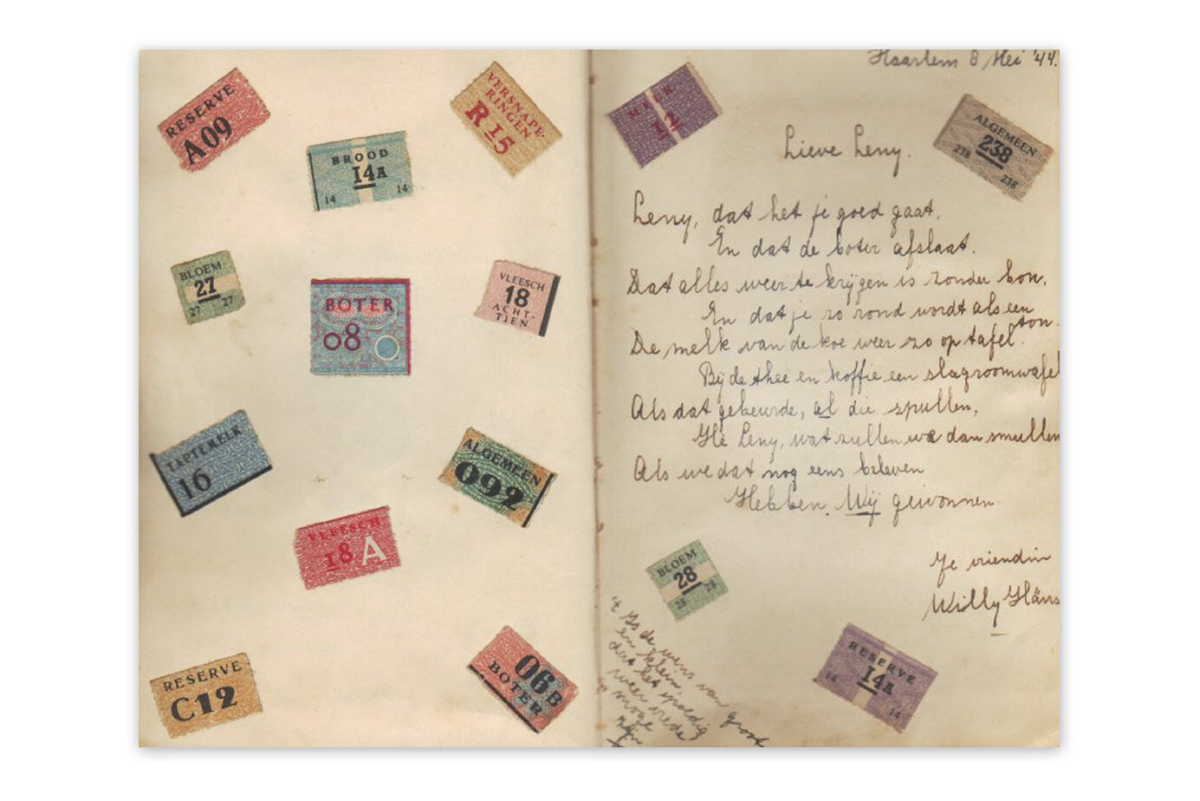 RESERVE
A09
BROOD
14A
14 14
VERSNAPE-
RINGEN
R 15
BLOEM
27
27 27
BOTER
08
VLEESCH
18
ACHT-
TIEN
TAPTEMELK
16
ALGEMEEN
092
VLEESCH
18 A
RESERVE
C12
06B
BOTER
Haarlem 8 Mei '44.
MELK
12
ALGEMEEN
238
238 238
Lieve Leny.
Leny, dat het je goed gaat,
En dat de boter afslaat.
Dat alles weer te krijgen is zonder bon,
En dat je zo rond wordt als een
ton.
De melk van de koe weer zo op tafel
Bij de thee en koffie een slagroomwafel
Als dat gebeurde, al die spullen,
Hé Leny, wat zullen we dan smullen
Als we dat nog eens beleven
Hebben Wij gewonnen
Je vriendin
Willy Häns
BLOEM
28
28 28
RESERVE
14A
14 14
't Is de wens van groot
en klein,
dat het spoedig
weer vrede
moge
zijn